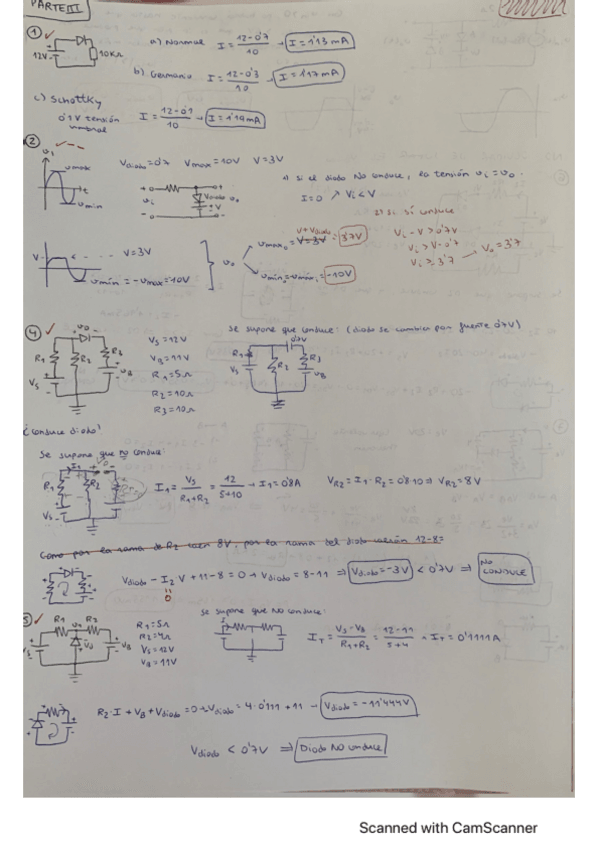 PARTE III
①
12V
10KΩ
a) Normal I = 12-0'7 / 10 → I = 1'13 mA
b) Germanio I = 12-0'3 / 10 → I = 1'17 mA
c) Schottky
0'1V tensión
umbral
I = 12-0'1 / 10 → I = 1'19 mA
②
Vdiodo = 0'7 Vmax = 10V V = 3V
1) si el diodo NO conduce, la tensión vi = vo.
I = 0 ↗ Vi < V
2) si sí conduce
Vi - V > 0'7V
Vi ≥ 3'7 → Vo = 3'7
V = 3V
vmín = -vmax = 10V
vo
V + Vdiodo
3'7V
-10V
④
Vs = 12V
VB = 11V
R1 = 5Ω
R2 = 10Ω
R3 = 10Ω
Se supone que conduce: (diodo se cambia por fuente 0'7V)
0'7V
¿Conduce diodo?
Se supone que no conduce:
I1 = Vs / R1+R2 = 12 / 5+10 → I1 = 0'8A VR2 = I1 · R2 = 0'8·10 ⇒ VR2 = 8V
Como por la rama de R2 caen 8V, por la rama del diodo caerán 12-8=
Vdiodo - I2 V + 11-8 = 0 → Vdiodo = 8-11 ⇒ Vdiodo = -3V < 0'7V ⇒ NO CONDUCE
0
⑤
R1 R2
Vs
VB
R1 = 5Ω
R2 = 4Ω
Vs = 12V
VB = 11V
Se supone que NO conduce:
IT = Vs-VB / R1+R2 = 12-11 / 5+4 → IT = 0'1111A
R2·I + VB + Vdiodo = 0 → Vdiodo = 4·0'111 + 11 → Vdiodo = -11'444V
Vdiodo < 0'7V ⇒ Diodo NO conduce
Scanned with CamScanner